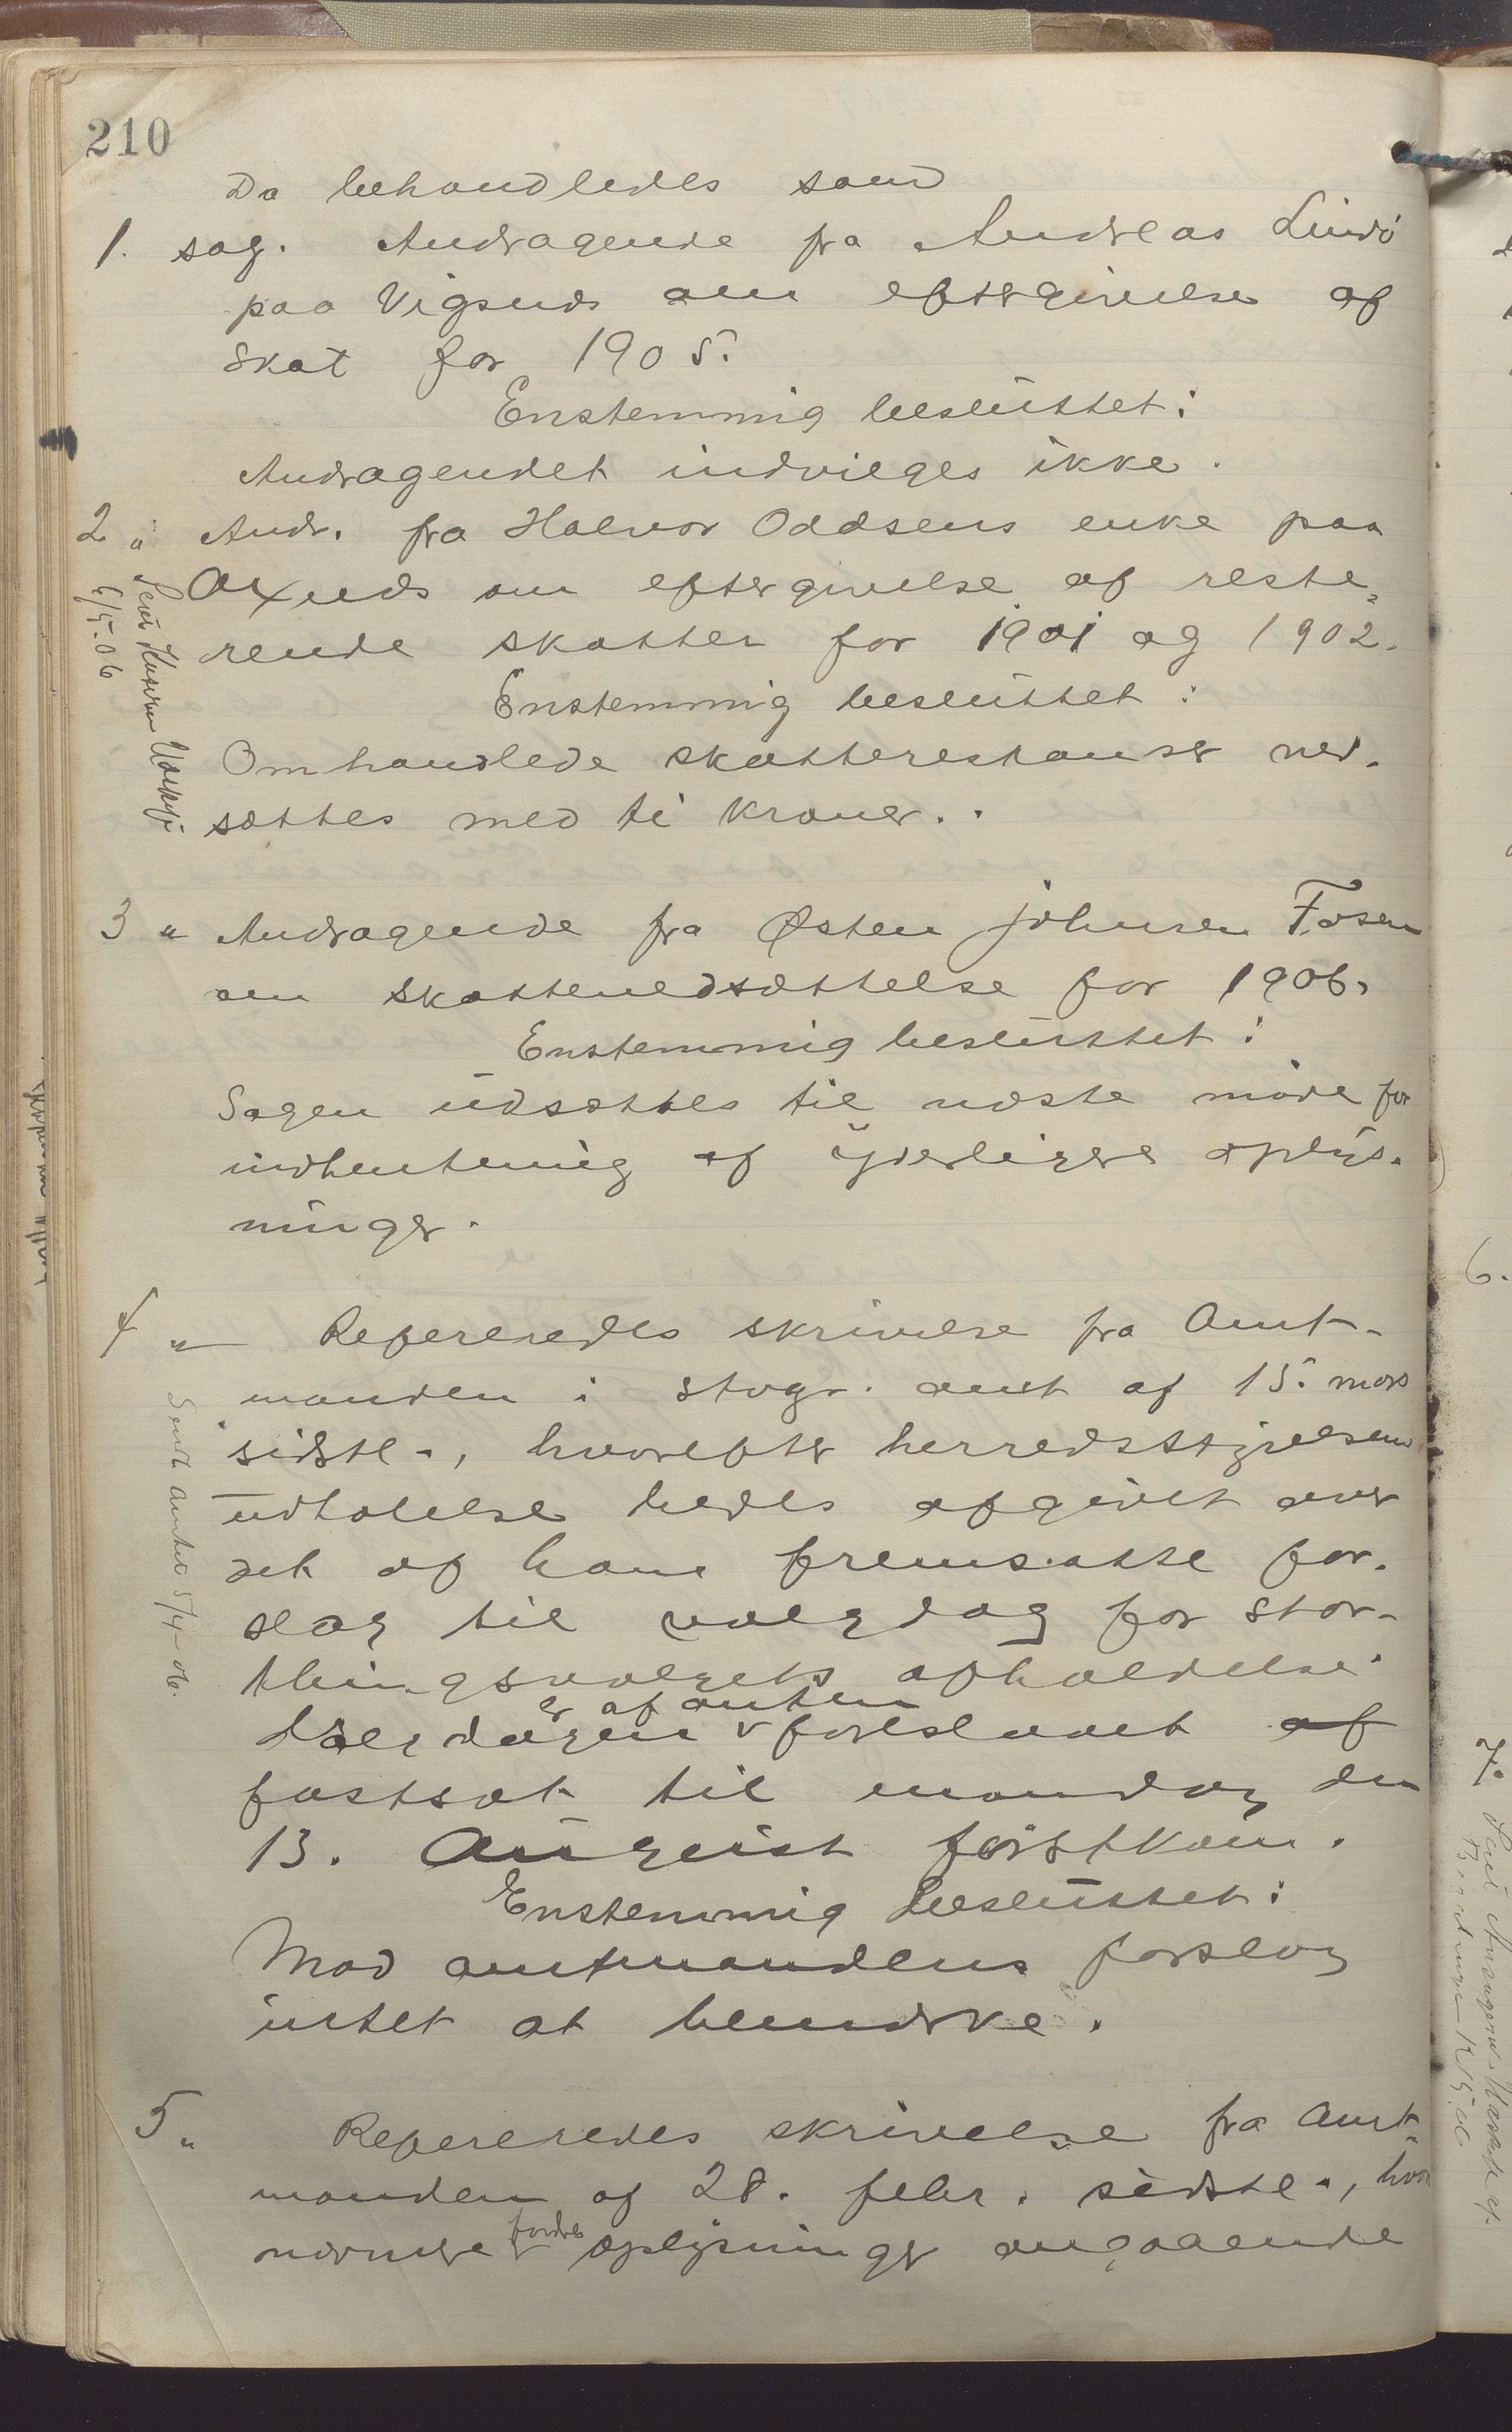 210
Da behandledes som
1. sag. Andragende fra Andreas Lindø
paa Vignes om eftergivelse af
skat for 1905.
Enstemmig besluttet:
Andragendet indvilges ikke.
2 " Andr. fra Halvor Oddsens enke paa
om eftergivelse af reste-
rende skatter for 1901 og 1902.
Enstemmig besluttet:
Omhandlede skatterestanser ned-
sættes med ti kroner.
6/5-06
3 " Andragende fra Østen Johnsen Fosen
om skattenedsættelse for 1906.
Enstemmig besluttet:
Sagen udsættes til næste møde for
indhentning af yderligere oplys-
ninger.
4 " Refereredes skrivelse fra Amt-
manden i Stvgr. amt af 15. mars
sidstl., hvorefter herredsstyrelsens
udtalelse bedes afgivet over
det af ham fremsatte for-
slag til valgdag for stor-
thingsvalgets afholdelse.
Valgdagen er af amtm foreslaaet af
fastsat til mandag den
13. August førstkom.
Enstemmig besluttet:
Mod amtmandens forslag
intet at bemærke.
Sendt Amtet 5/4-06.
5 " Refereredes skrivelse fra Amt-
manden af 28. febr. sidstl., hvor
nærmere fordres oplysninger angaaende
6.
7.